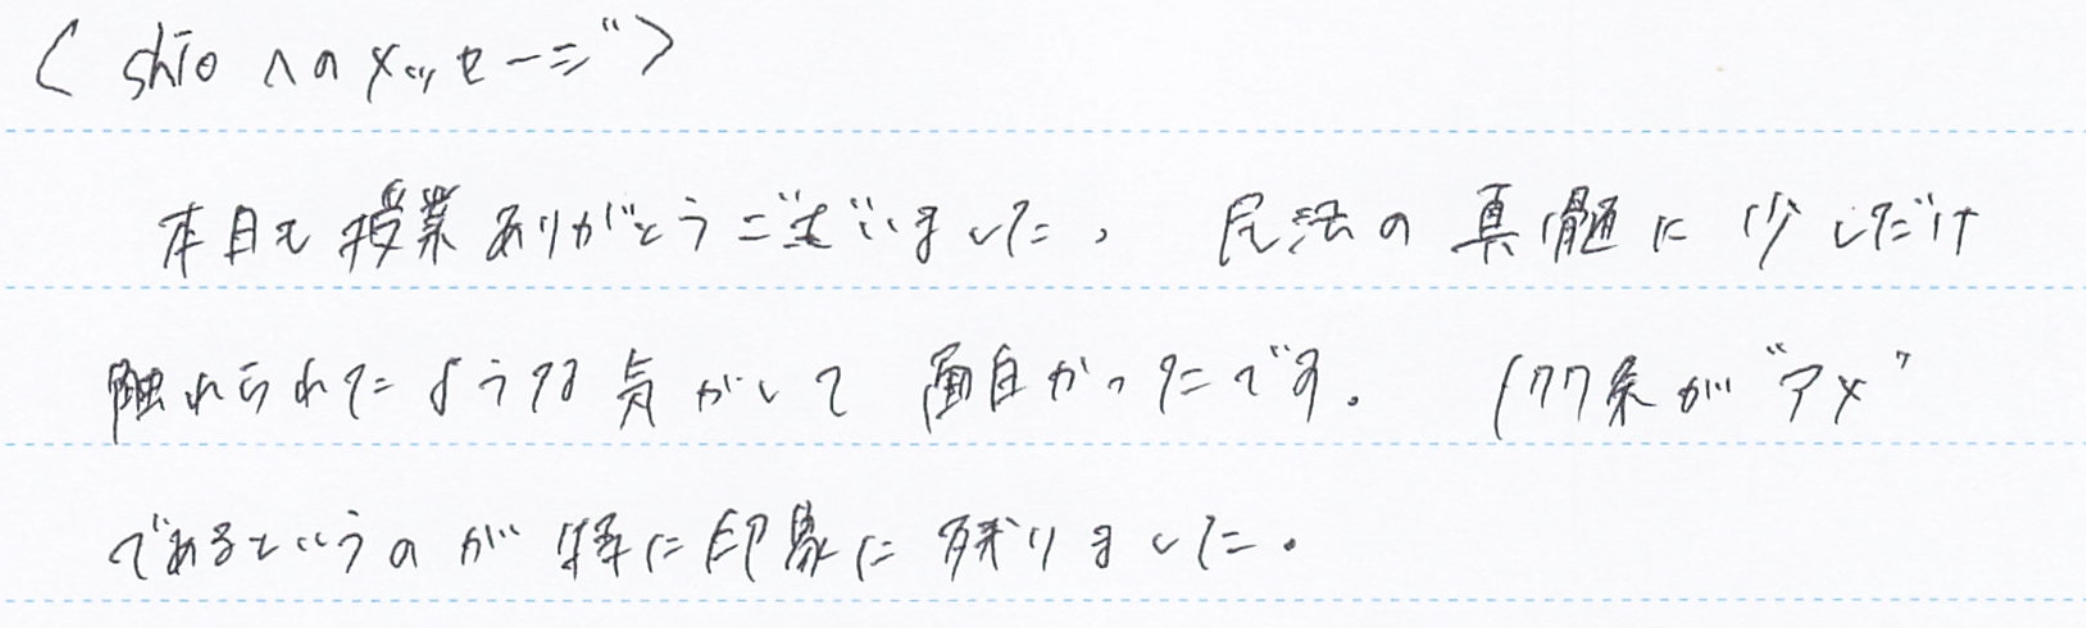 〈shioへのメッセージ〉
本日も授業ありがとうございました、民法の真髄に少しだけ
触れられたような気がして面白かったです。177条が“アメ”
であるというのが特に印象に残りました。